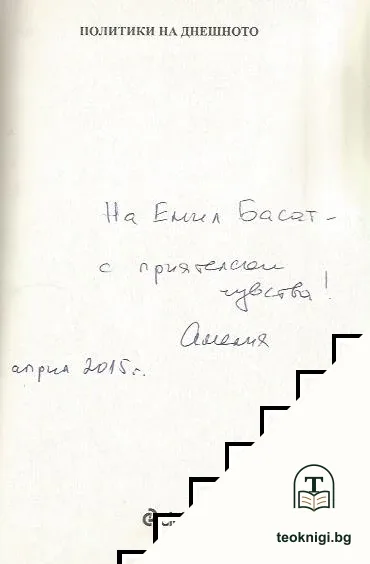 ПОЛИТИКИ НА ДНЕШНОТО
На Емил Басат –
с приятелски
чувства!
Амелия
април 2015 г.
T
teoknigi.bg